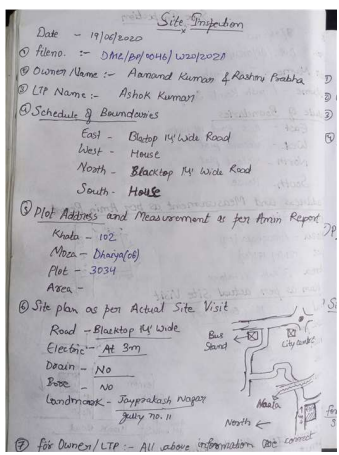 Site Inspection
Date - 19/06/2020
① fileno. :- DMC/BP/0046/W20/2020
② Owner/Name :- Aanand Kumar & Rashmi Prabha
③ LTP Name :- Ashok Kumar
④ Schedule of Boundaries
East - Blacktop 14' Wide Road
West - House
North - Blacktop 14' Wide Road
South - House
⑤ Plot Address and Measurement as per Amin Report
Khata - 102
Moza - Dhaiya(06)
Plot - 3034
Area -
⑥ Site plan as per Actual Site Visit
Road - Blacktop 14' wide
Electric - At 3m
Drain - No
Bore - No
Landmark - Jayprakash Nagar
gully no. 11
Bus
Stand
City centre
North
⑦ for Owner/LTP - All above information are correct